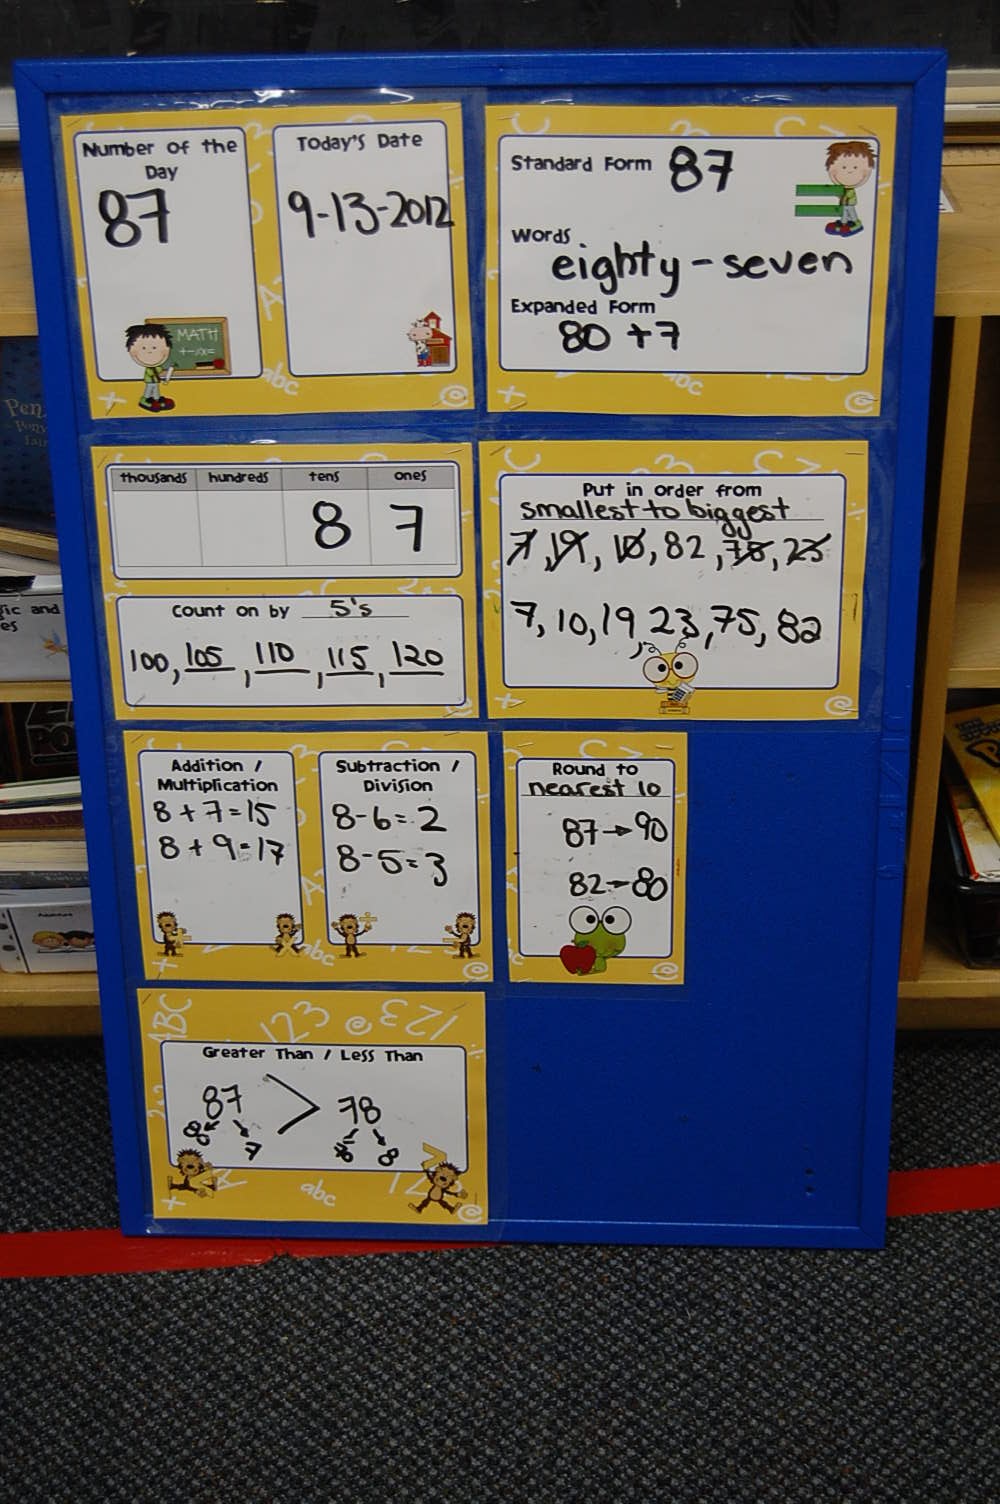 Number of the
Day
87
MATH
+-×=
Today's Date
9-13-2012
abc
Standard Form 87
Words
eighty-seven
Expanded Form
80 + 7
abc
thousands hundreds tens ones
8 7
Count on by 5's
100, 105, 110, 115, 120
Put in order from
smallest to biggest
7, 19, 10, 82, 75, 23
7, 10, 19, 23, 75, 82
Addition /
Multiplication
8 + 7 = 15
8 + 9 = 17
Subtraction /
Division
8 - 6 = 2
8 - 5 = 3
abc
Round to
nearest 10
87 → 90
82 → 80
ABC 123 @
Greater Than / Less Than
87 > 78
8 7 7 8
abc